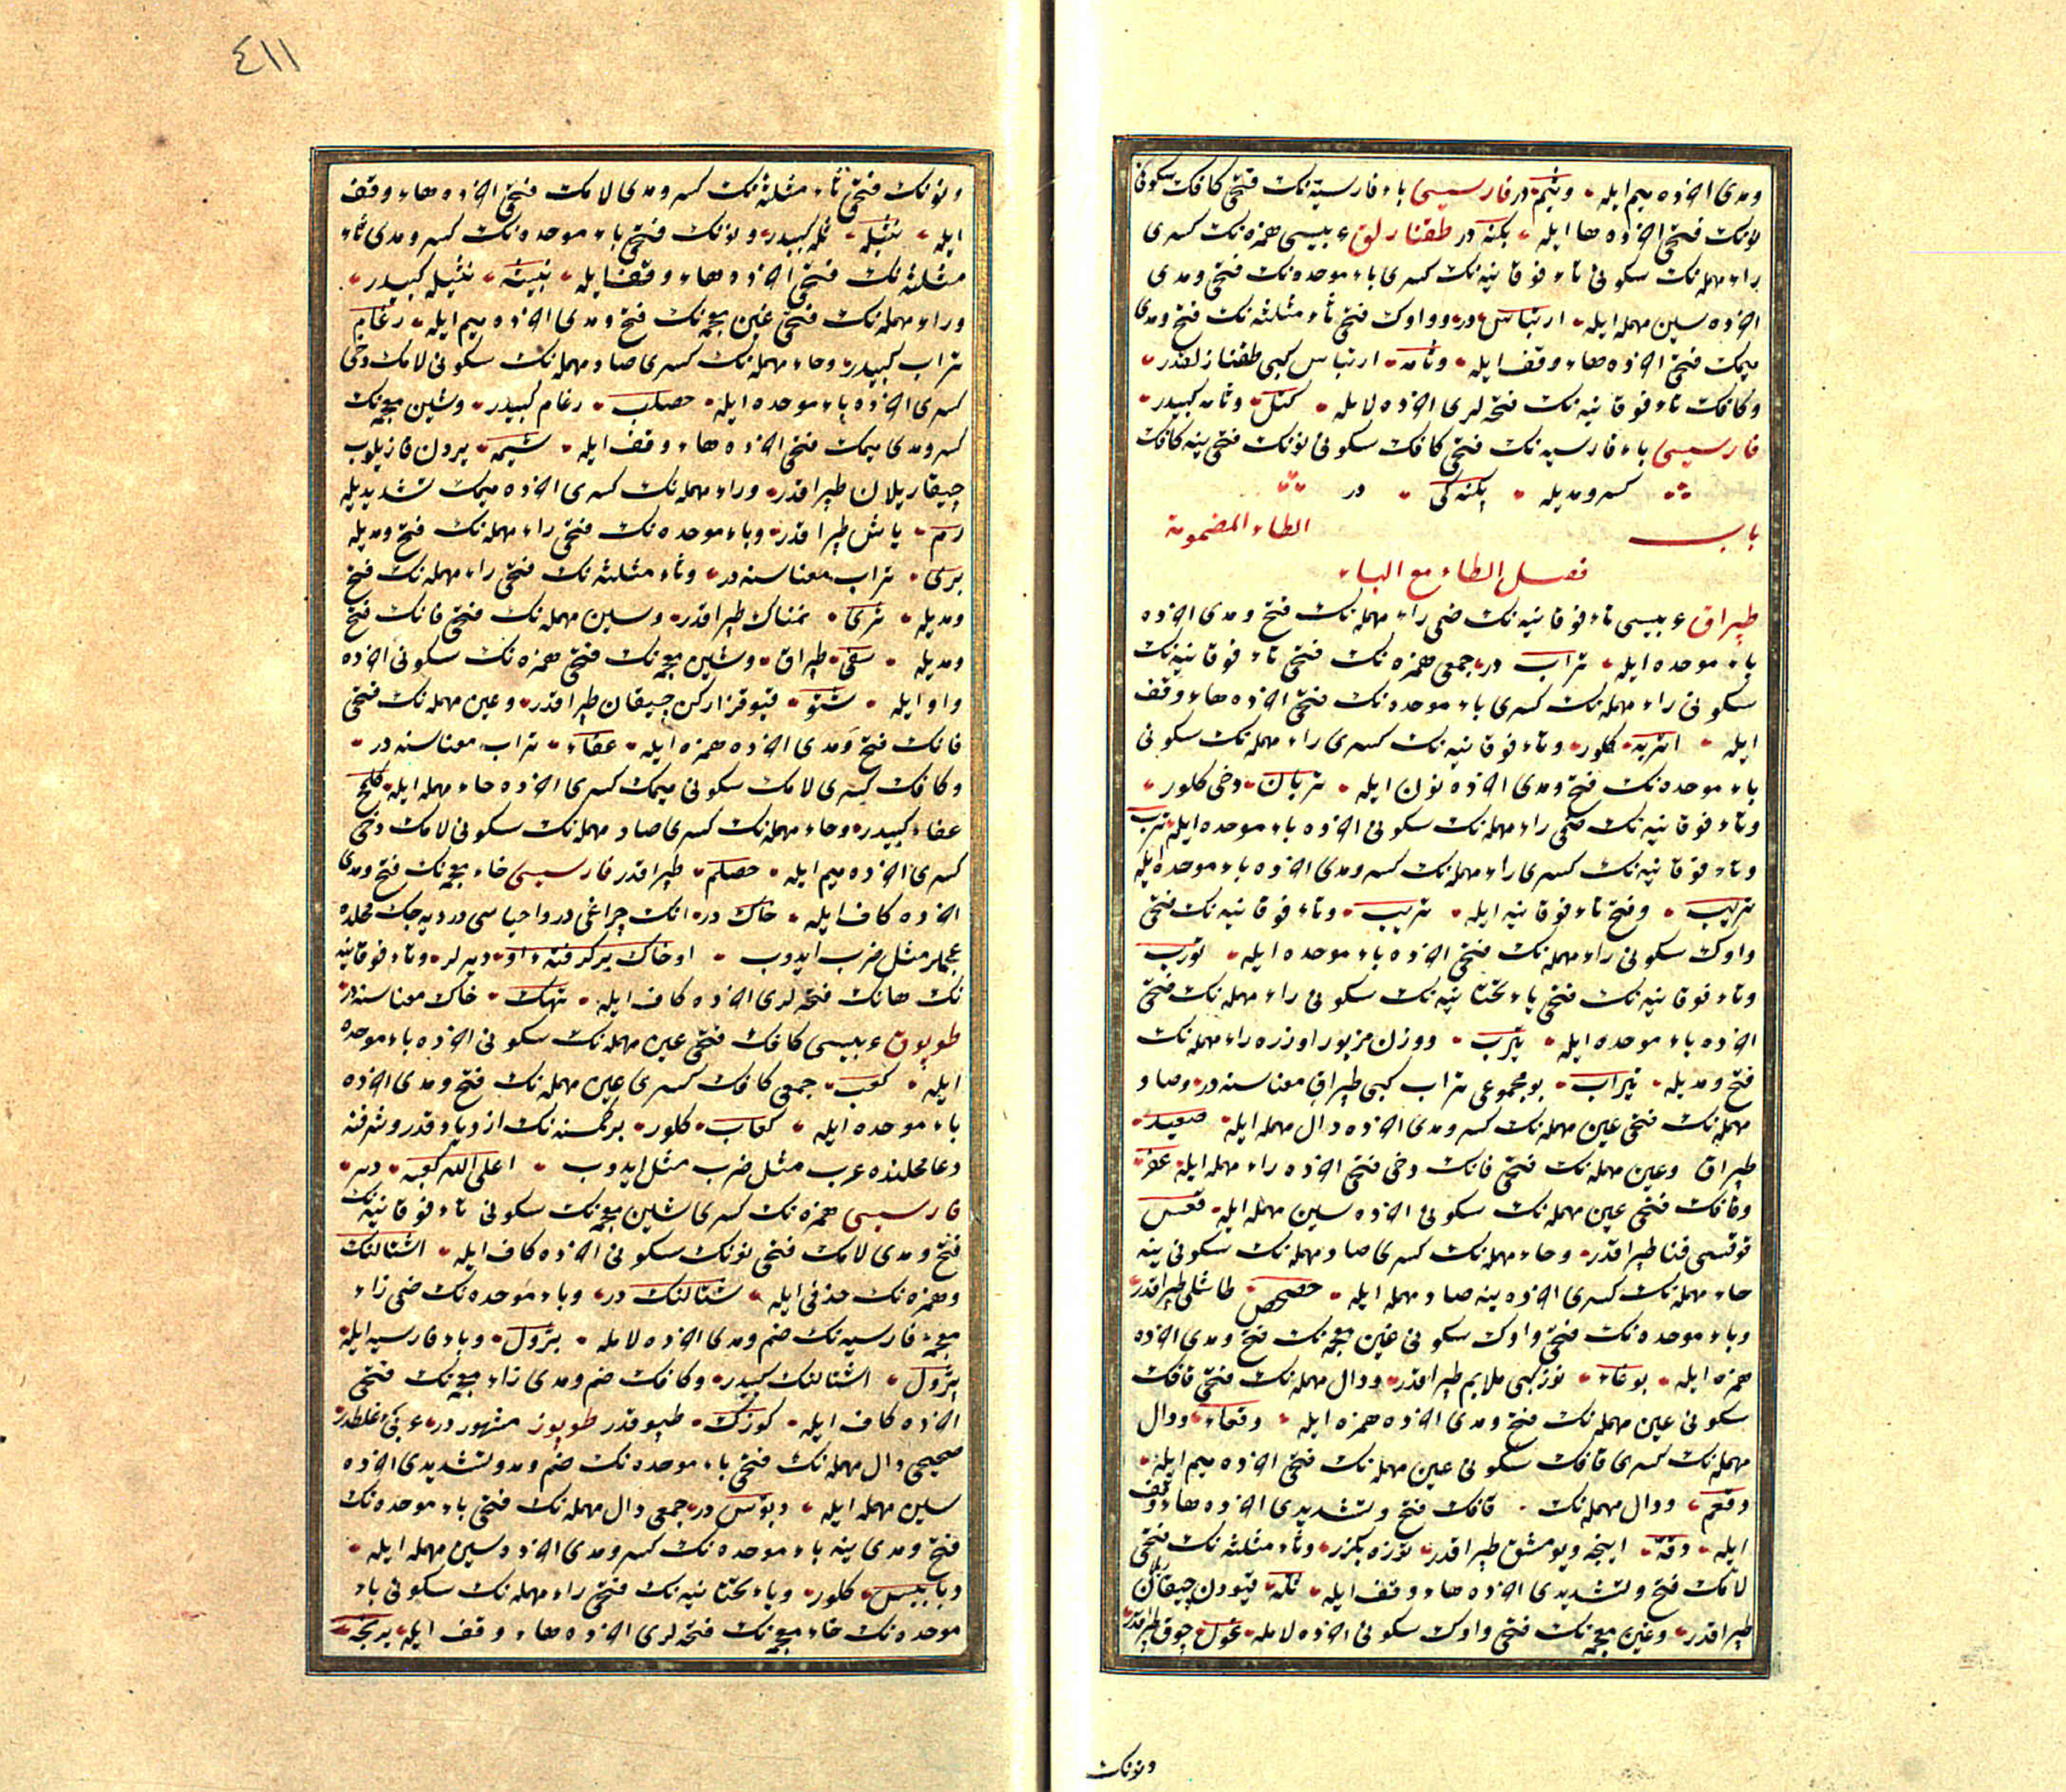 ومدی اخرده میم ایله وثیم در فارسیسی باء فارسیه نك فتحی كافك سكونی
نونك فتحی اخرده ها ایله بكنه در طقنازلق عربیسی همزه نك كسری
راء مهمله نك سكونی تاء فوقانیه نك كسری باء موحده نك فتحی ومدی
اخرده سین مهمله ایله ارتباس در وواوك فتحی ثاء مثلثه نك فتح ومدی
میمك فتحی اخرده هاء وقف ایله وثامه ارتباس كبی طقنازلقدر
وكافك تاء فوقانیه نك فتحه لری اخرده لامله كتل وثامه كبیدر
فارسیسی باء فارسیه نك فتحی كافك سكونی نونك فتحی ینه كافك
كسر ومدیله بكنه كی در
باب الطاء المضمومة
فصل الطاء مع الباء
طپراق عربیسی تاء فوقانیه نك ضمی راء مهمله نك فتح ومدی اخرده
باء موحده ایله تراب در جمعی همزه نك فتحی تاء فوقانیه نك
سكونی راء مهمله نك كسری باء موحده نك فتحی اخرده هاء وقف
ایله اتربه كلور وتاء فوقانیه نك كسری راء مهمله نك سكونی
باء موحده نك فتح ومدی اخرده نون ایله تربان دخی كلور
وتاء فوقانیه نك ضمی راء مهمله نك سكونی اخرده باء موحده ایله ترب
وتاء فوقانیه نك كسری راء مهمله نك كسر ومدی اخرده باء موحده ایله
تریب وفتح تاء فوقانیه ایله تریب وتاء فوقانیه نك فتحی
واوك سكونی راء مهمله نك فتحی اخرده باء موحده ایله تورب
وتاء فوقانیه نك فتحی یاء تحتانیه نك سكونی راء مهمله نك فتحی
اخرده باء موحده ایله تیرب ووزن مزبور اوزره راء مهمله نك
فتح ومدیله تیراب بو مجموعی تراب كبی طپراق معناسنه در وصاد
مهمله نك فتحی عین مهمله نك كسر ومدی اخرده دال مهمله ایله صعید
طپراق وعین مهمله نك فتحی فانك دخی فتحی اخرده راء مهمله ایله عفر
وقافك فتحی عین مهمله نك سكونی اخرده سین مهمله ایله قعس
قوقسی فنا طپراقدر وحاء مهمله نك كسری صاد مهمله نك سكونی ینه
حاء مهمله نك كسری اخرده ینه صاد مهمله ایله حصحص طاشلی طپراقدر
وباء موحده نك فتحی واوك سكونی غین معجمه نك فتح ومدی اخرده
همزه ایله بوغاء توز كبی ملایم طپراقدر ودال مهمله نك فتحی قافك
سكونی عین مهمله نك فتح ومدی اخرده همزه ایله دقعاء ودال
مهمله نك كسری قافك سكونی عین مهمله نك فتحی اخرده میم ایله
دقعم ودال مهمله نك قافك فتح وتشدیدی اخرده هاء وقف
ایله دقة اینجه ویومشق طپراقدر توزه بكزر وثاء مثلثه نك فتحی
لامك فتح وتشدیدی اخرده هاء وقف ایله ثله قیودن چیقاریلان
طپراقدر وغین معجمه نك فتحی واوك سكونی اخرده لامله غول چوق طپراقدر
ونونك
٤١١
ونونك فتحی ثاء مثلثه نك كسر ومدی لامك فتحی اخرده هاء وقف
ایله نثیله ثله كبیدر ونونك فتحی باء موحده نك كسر ومدی ثاء
مثلثه نك فتحی اخرده هاء وقف ایله نبیثه نثیله كبیدر
وراء مهمله نك فتحی غین معجمه نك فتح ومدی اخرده میم ایله رغام
تراب كبیدر وحاء مهمله نك كسری صاد مهمله نك سكونی لامك دخی
كسری اخرده باء موحده ایله حصلب رغام كبیدر وشین معجمه نك
كسر ومدی میمك فتحی اخرده هاء وقف ایله شیمه یردن قازیلوب
چیقاریلان طپراقدر وراء مهمله نك كسری اخرده میمك تشدیدیله
رم یاش طپراقدر وباء موحده نك فتحی راء مهمله نك فتح ومدیله
بری تراب معناسنه در وثاء مثلثه نك فتحی راء مهمله نك فتح
ومدیله ثری نمناك طپراقدر وسین مهمله نك فتحی فانك فتح
ومدیله سفی طپراق وشین معجمه نك فتحی همزه نك سكونی اخرده
واو ایله شئو قیو قزاركن چیقان طپراقدر وعین مهمله نك فتحی
فانك فتح ومدی اخرده همزه ایله عفاء تراب معناسنه در
وكافك كسری لامك سكونی میمك كسری اخرده حاء مهمله ایله كلمح
عفاء كبیدر وحاء مهمله نك كسری صاد مهمله نك سكونی لامك دخی
كسری اخرده میم ایله حصلم طپراقدر فارسیسی خاء معجمه نك فتح ومدی
اخرده كاف ایله خاك در انك چراغی در واحیاسی در دیه جك محلده
عجملر مثل ضرب ایدوب او خاك بركرفته‌ء او دیرلر وتاء فوقانیه
نك هانك فتحه لری اخرده كاف ایله تهك خاك معناسنه در
طوپوق عربیسی كافك فتحی عین مهمله نك سكونی اخرده باء موحده
ایله كعب جمعی كافك كسری عین مهمله نك فتح ومدی اخرده
باء موحده ایله كعاب كلور بر كمسنه نك ازدیاد قدر وشرفنه
دعا محلنده عرب مثل ضرب مثل ایدوب اعلی الله كعبه دیر
فارسیسی همزه نك كسری شین معجمه نك سكونی تاء فوقانیه نك
فتح ومدی لامك فتحی نونك سكونی اخرده كاف ایله اشتالنك
وهمزه نك حذفی ایله شتالنك در وباء موحده نك ضمی زاء
معجمه‌ء فارسیه نك ضم ومدی اخرده لامله بژول وباء فارسیه ایله
پژول اشتالنك كبیدر وكافك ضم ومدی زاء معجمه نك فتحی
اخرده كاف ایله كوزك طپوقدر طوپوز مشهور در عربی غلطدر
صحیحی دال مهمله نك فتحی باء موحده نك ضم ومد وتشدیدی اخرده
سین مهمله ایله دبوس در جمعی دال مهمله نك فتحی باء موحده نك
فتح ومدی ینه باء موحده نك كسر ومدی اخرده سین مهمله ایله
دبابیس كلور ویاء تحتانیه نك فتحی راء مهمله نك سكونی باء
موحده نك خاء معجمه نك فتحه لری اخرده هاء وقف ایله یربخه